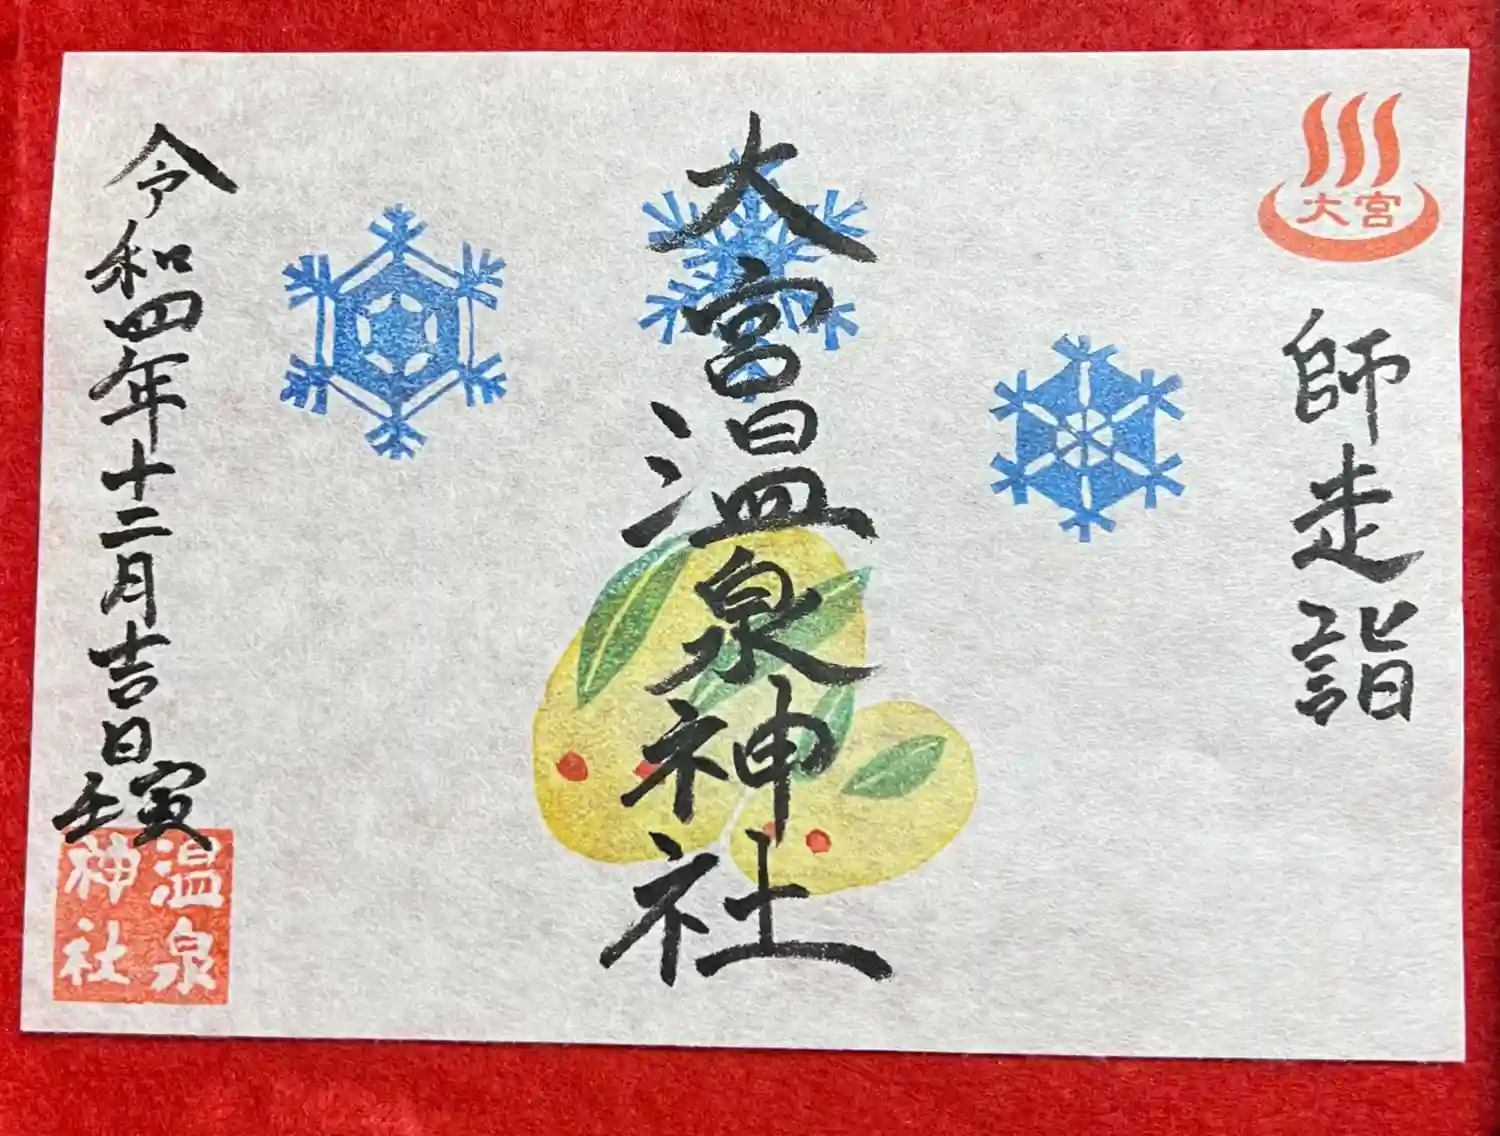 大宮
師走詣
大宮温泉神社
令和四年十二月吉日
壬寅
温泉
神社